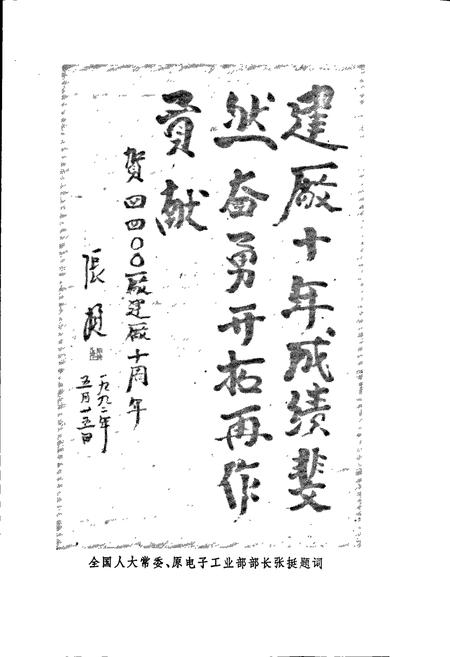 建厰十年成績斐
然奋勇开拓再作
貢献
賀四四〇〇厰建厰十周年
張挺
一九九二年
五月廿五日
全国人大常委、原电子工业部部长张挺题词